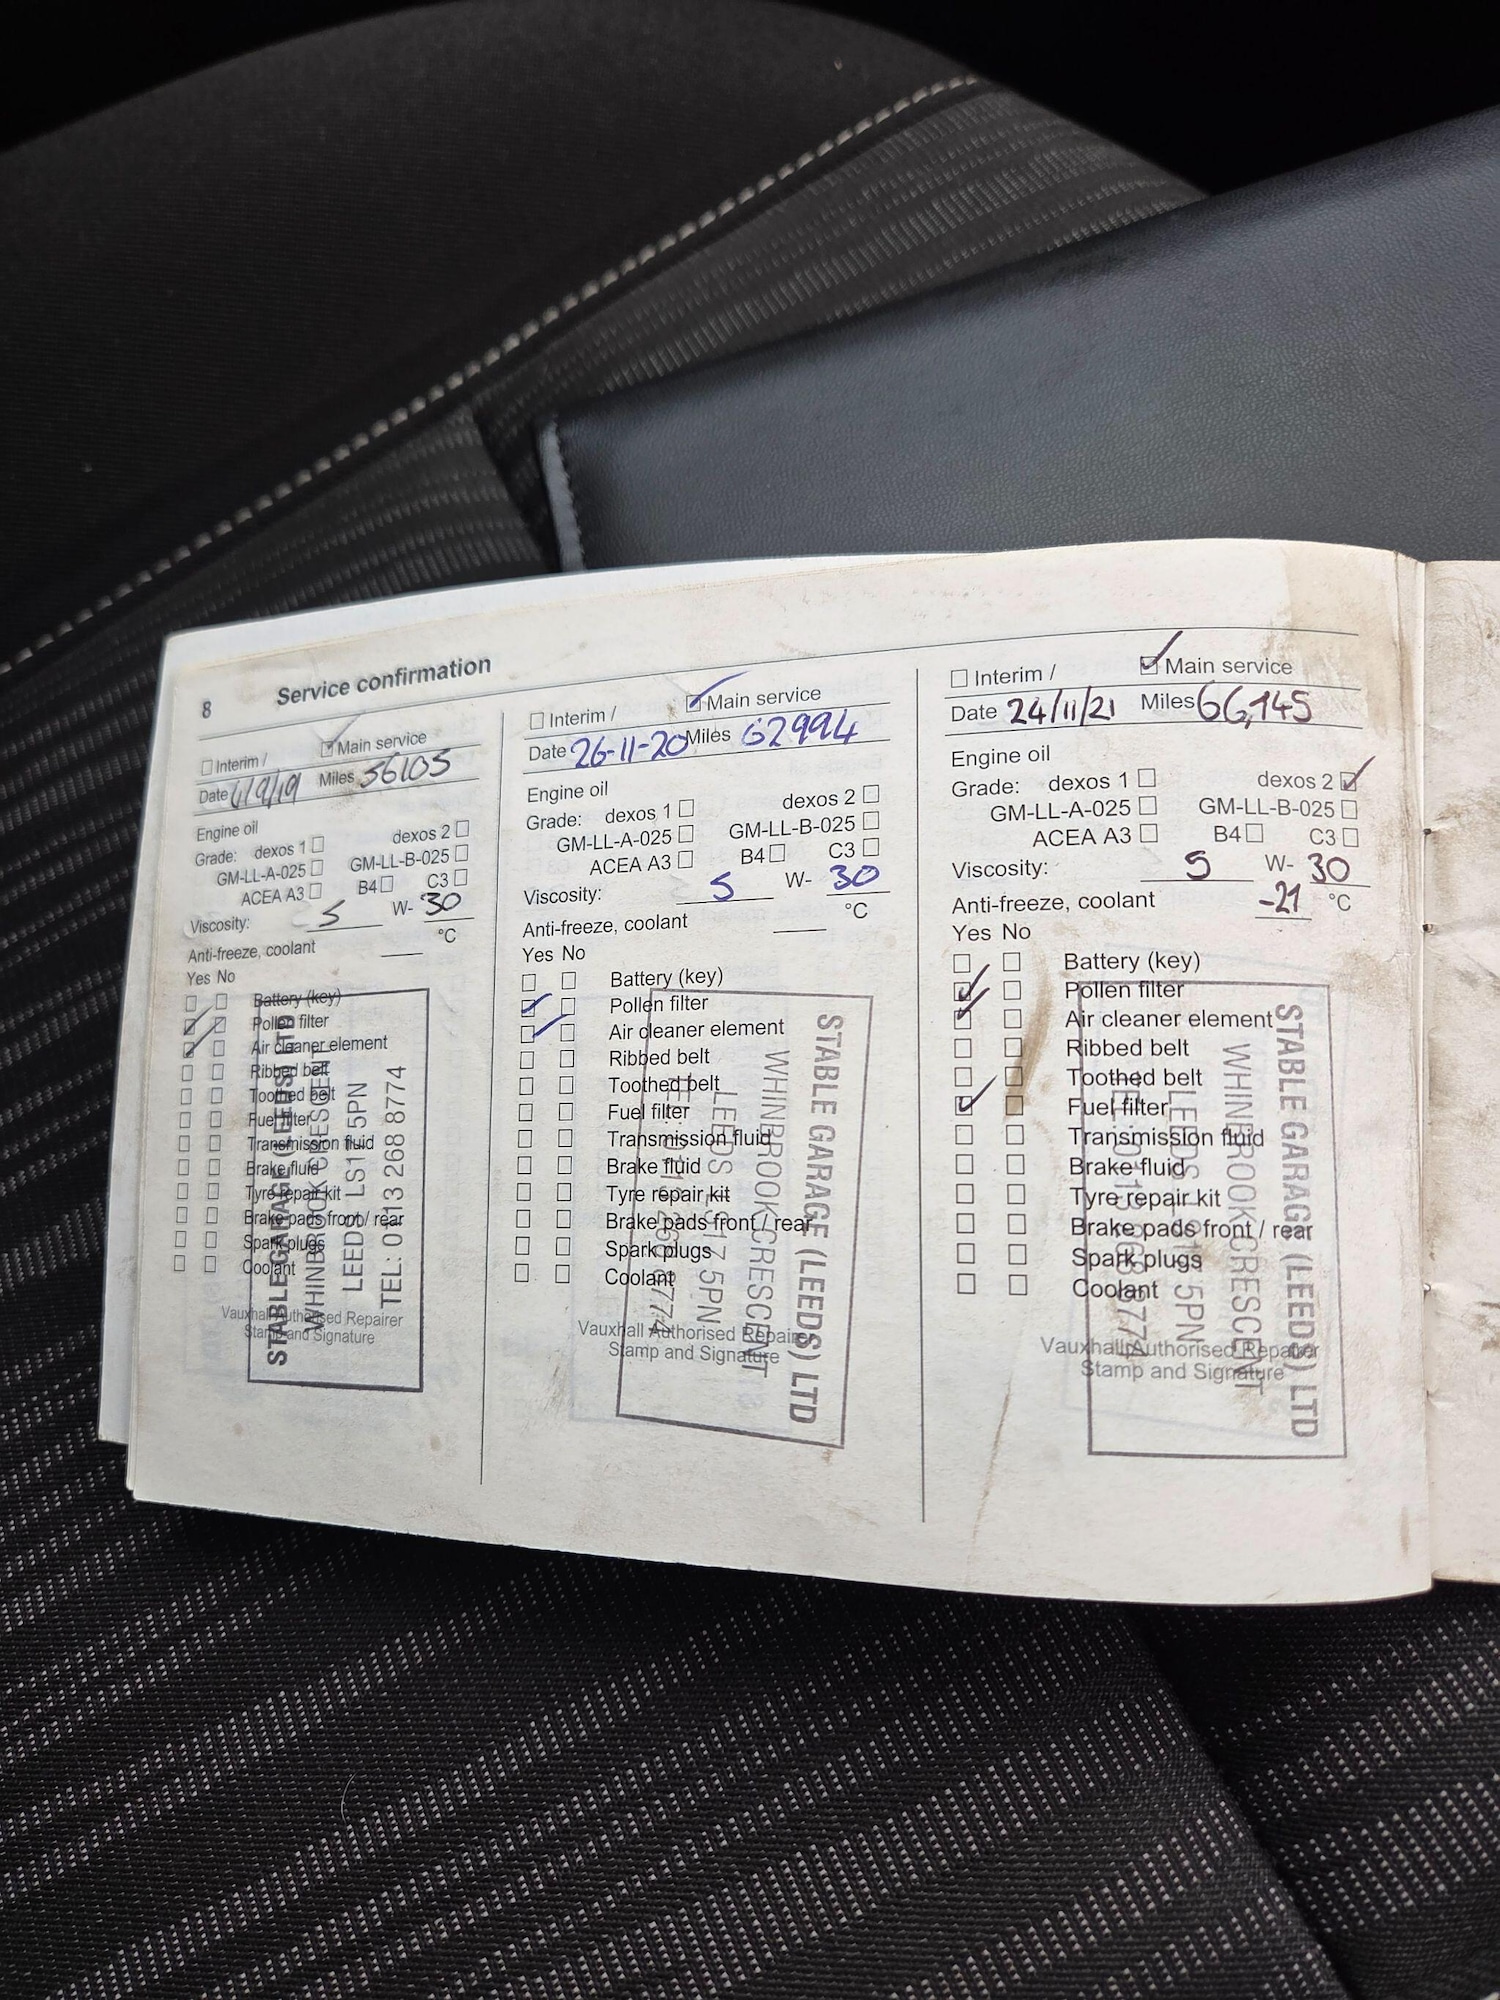 8 Service confirmation
Interim / Main service
Date 4/9/19 Miles 56105
Engine oil
Grade: dexos 1 dexos 2
GM-LL-A-025 GM-LL-B-025
ACEA A3 B4 C3
Viscosity: 5 W- 30
Anti-freeze, coolant °C
Yes No
Battery (key)
Pollen filter
Air cleaner element
Ribbed belt
Toothed belt
Fuel filter
Transmission fluid
Brake fluid
Tyre repair kit
Brake pads front / rear
Spark plugs
Coolant
Vauxhall Authorised Repairer
Stamp and Signature
STABLE GARAGE (LEEDS) LTD
WHINBROOK CRESCENT
LEEDS LS17 5PN
TEL: 0113 268 8774
Interim / Main service
Date 26-11-20 Miles 62994
Engine oil
Grade: dexos 1 dexos 2
GM-LL-A-025 GM-LL-B-025
ACEA A3 B4 C3
Viscosity: 5 W- 30
Anti-freeze, coolant °C
Yes No
Battery (key)
Pollen filter
Air cleaner element
Ribbed belt
Toothed belt
Fuel filter
Transmission fluid
Brake fluid
Tyre repair kit
Brake pads front / rear
Spark plugs
Coolant
Vauxhall Authorised Repairer
Stamp and Signature
STABLE GARAGE (LEEDS) LTD
WHINBROOK CRESCENT
LEEDS LS17 5PN
TEL: 0113 268 8774
Interim / Main service
Date 24/11/21 Miles 66,145
Engine oil
Grade: dexos 1 dexos 2
GM-LL-A-025 GM-LL-B-025
ACEA A3 B4 C3
Viscosity: 5 W- 30
Anti-freeze, coolant -21 °C
Yes No
Battery (key)
Pollen filter
Air cleaner element
Ribbed belt
Toothed belt
Fuel filter
Transmission fluid
Brake fluid
Tyre repair kit
Brake pads front / rear
Spark plugs
Coolant
Vauxhall Authorised Repairer
Stamp and Signature
STABLE GARAGE (LEEDS) LTD
WHINBROOK CRESCENT
LEEDS LS17 5PN
TEL: 0113 268 8774